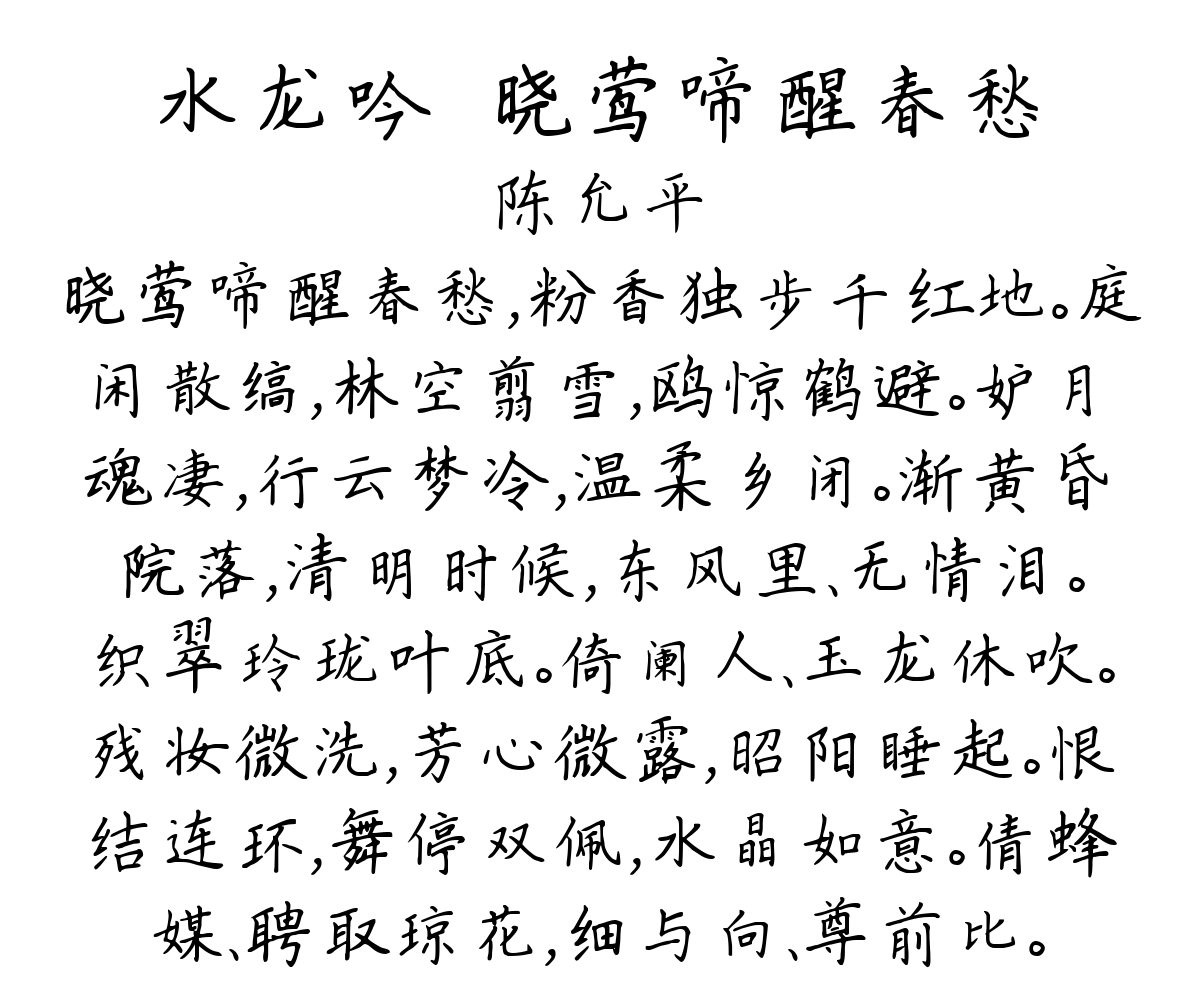 水龙吟 晓莺啼醒春愁
陈允平
晓莺啼醒春愁,粉香独步千红地。庭
闲散缟,林空翦雪,鸥惊鹤避。妒月
魂凄,行云梦冷,温柔乡闭。渐黄昏
院落,清明时候,东风里、无情泪。
织翠玲珑叶底。倚阑人、玉龙休吹。
残妆微洗,芳心微露,昭阳睡起。恨
结连环,舞停双佩,水晶如意。倩蜂
媒、聘取琼花,细与向、尊前比。